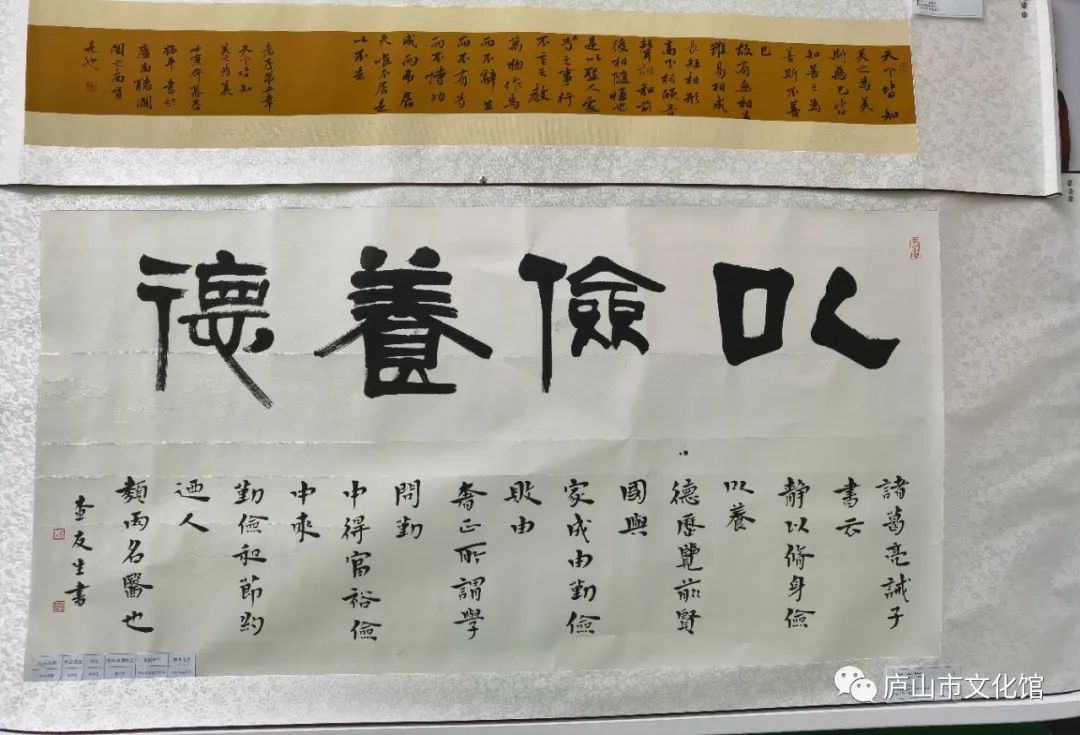 天下皆知
美之為美
斯惡已皆
知善之為
善斯不善
已
故有無相生
難易相成
長短相形
高下相傾音
聲相和前
後相隨恆也
是以聖人處
為之事行
不言之教
萬物作焉
而不辭生
而不有為
而不恃功
成而弗居
夫唯不居是
以不去
老子第二章
天下皆知
美之為美
壬寅年暮春
振平書於
廬南聽瀾
閣之南窗
是也
以儉養德
諸葛亮誡子
書云
静以脩身儉
以養
德歷覽前賢
國與
家成由勤儉
敗由
奢正所謂學
問勤
中得富裕儉
中來
勤儉和節約
迺人
類両名醫也
查友生書
庐山市文化馆